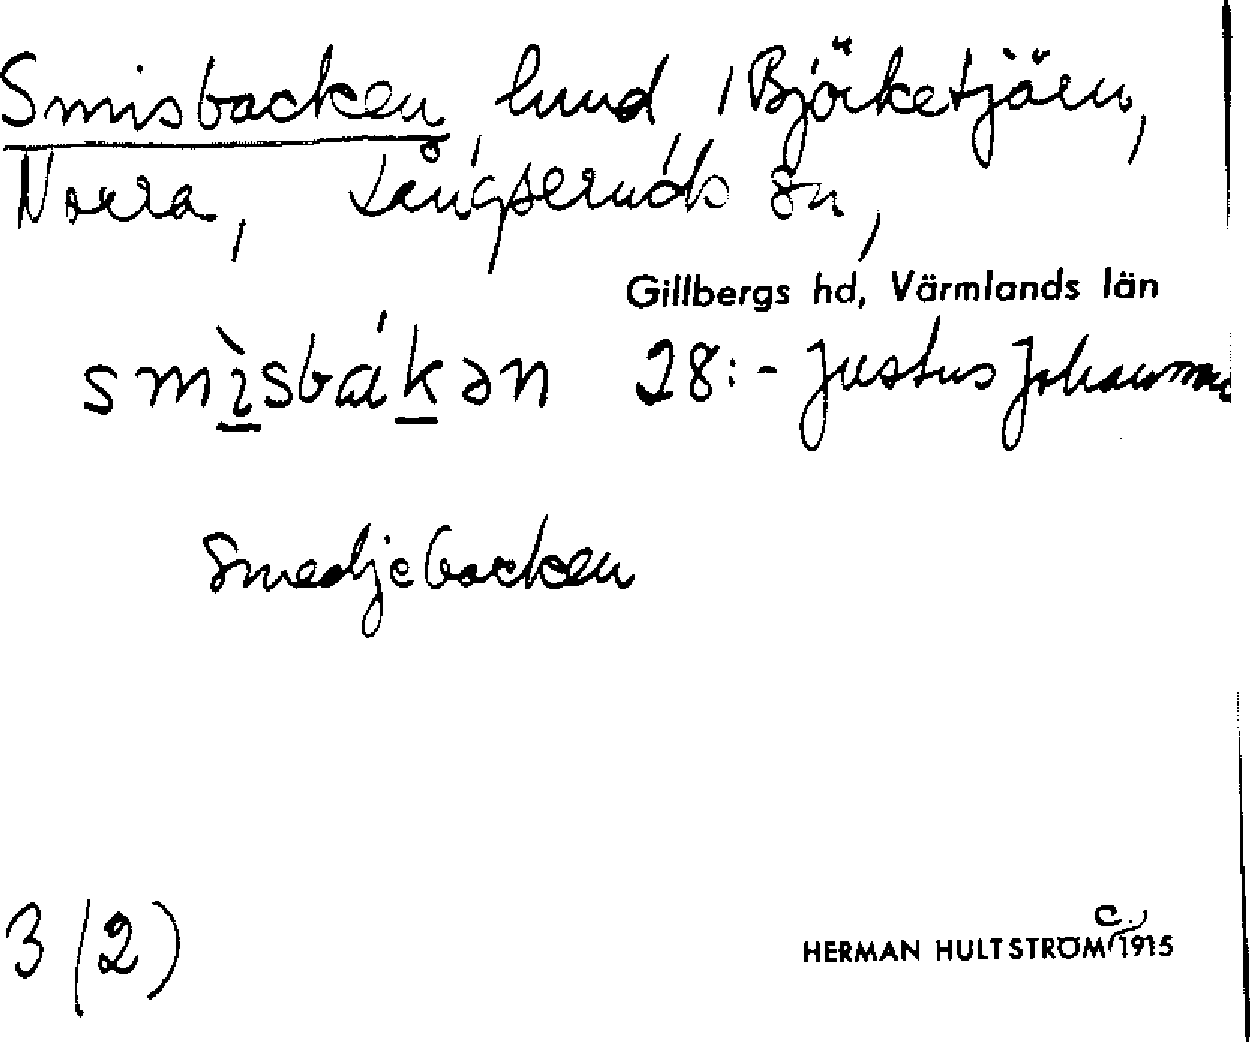 Smisbacken, lund, /Björketjärn,
Norra, Långseruds sn,
Gillbergs hd, Värmlands län
smìsbákən 28:- Justus
Smedjebacken
3 (2)
HERMAN HULTSTRÖM C. 1915